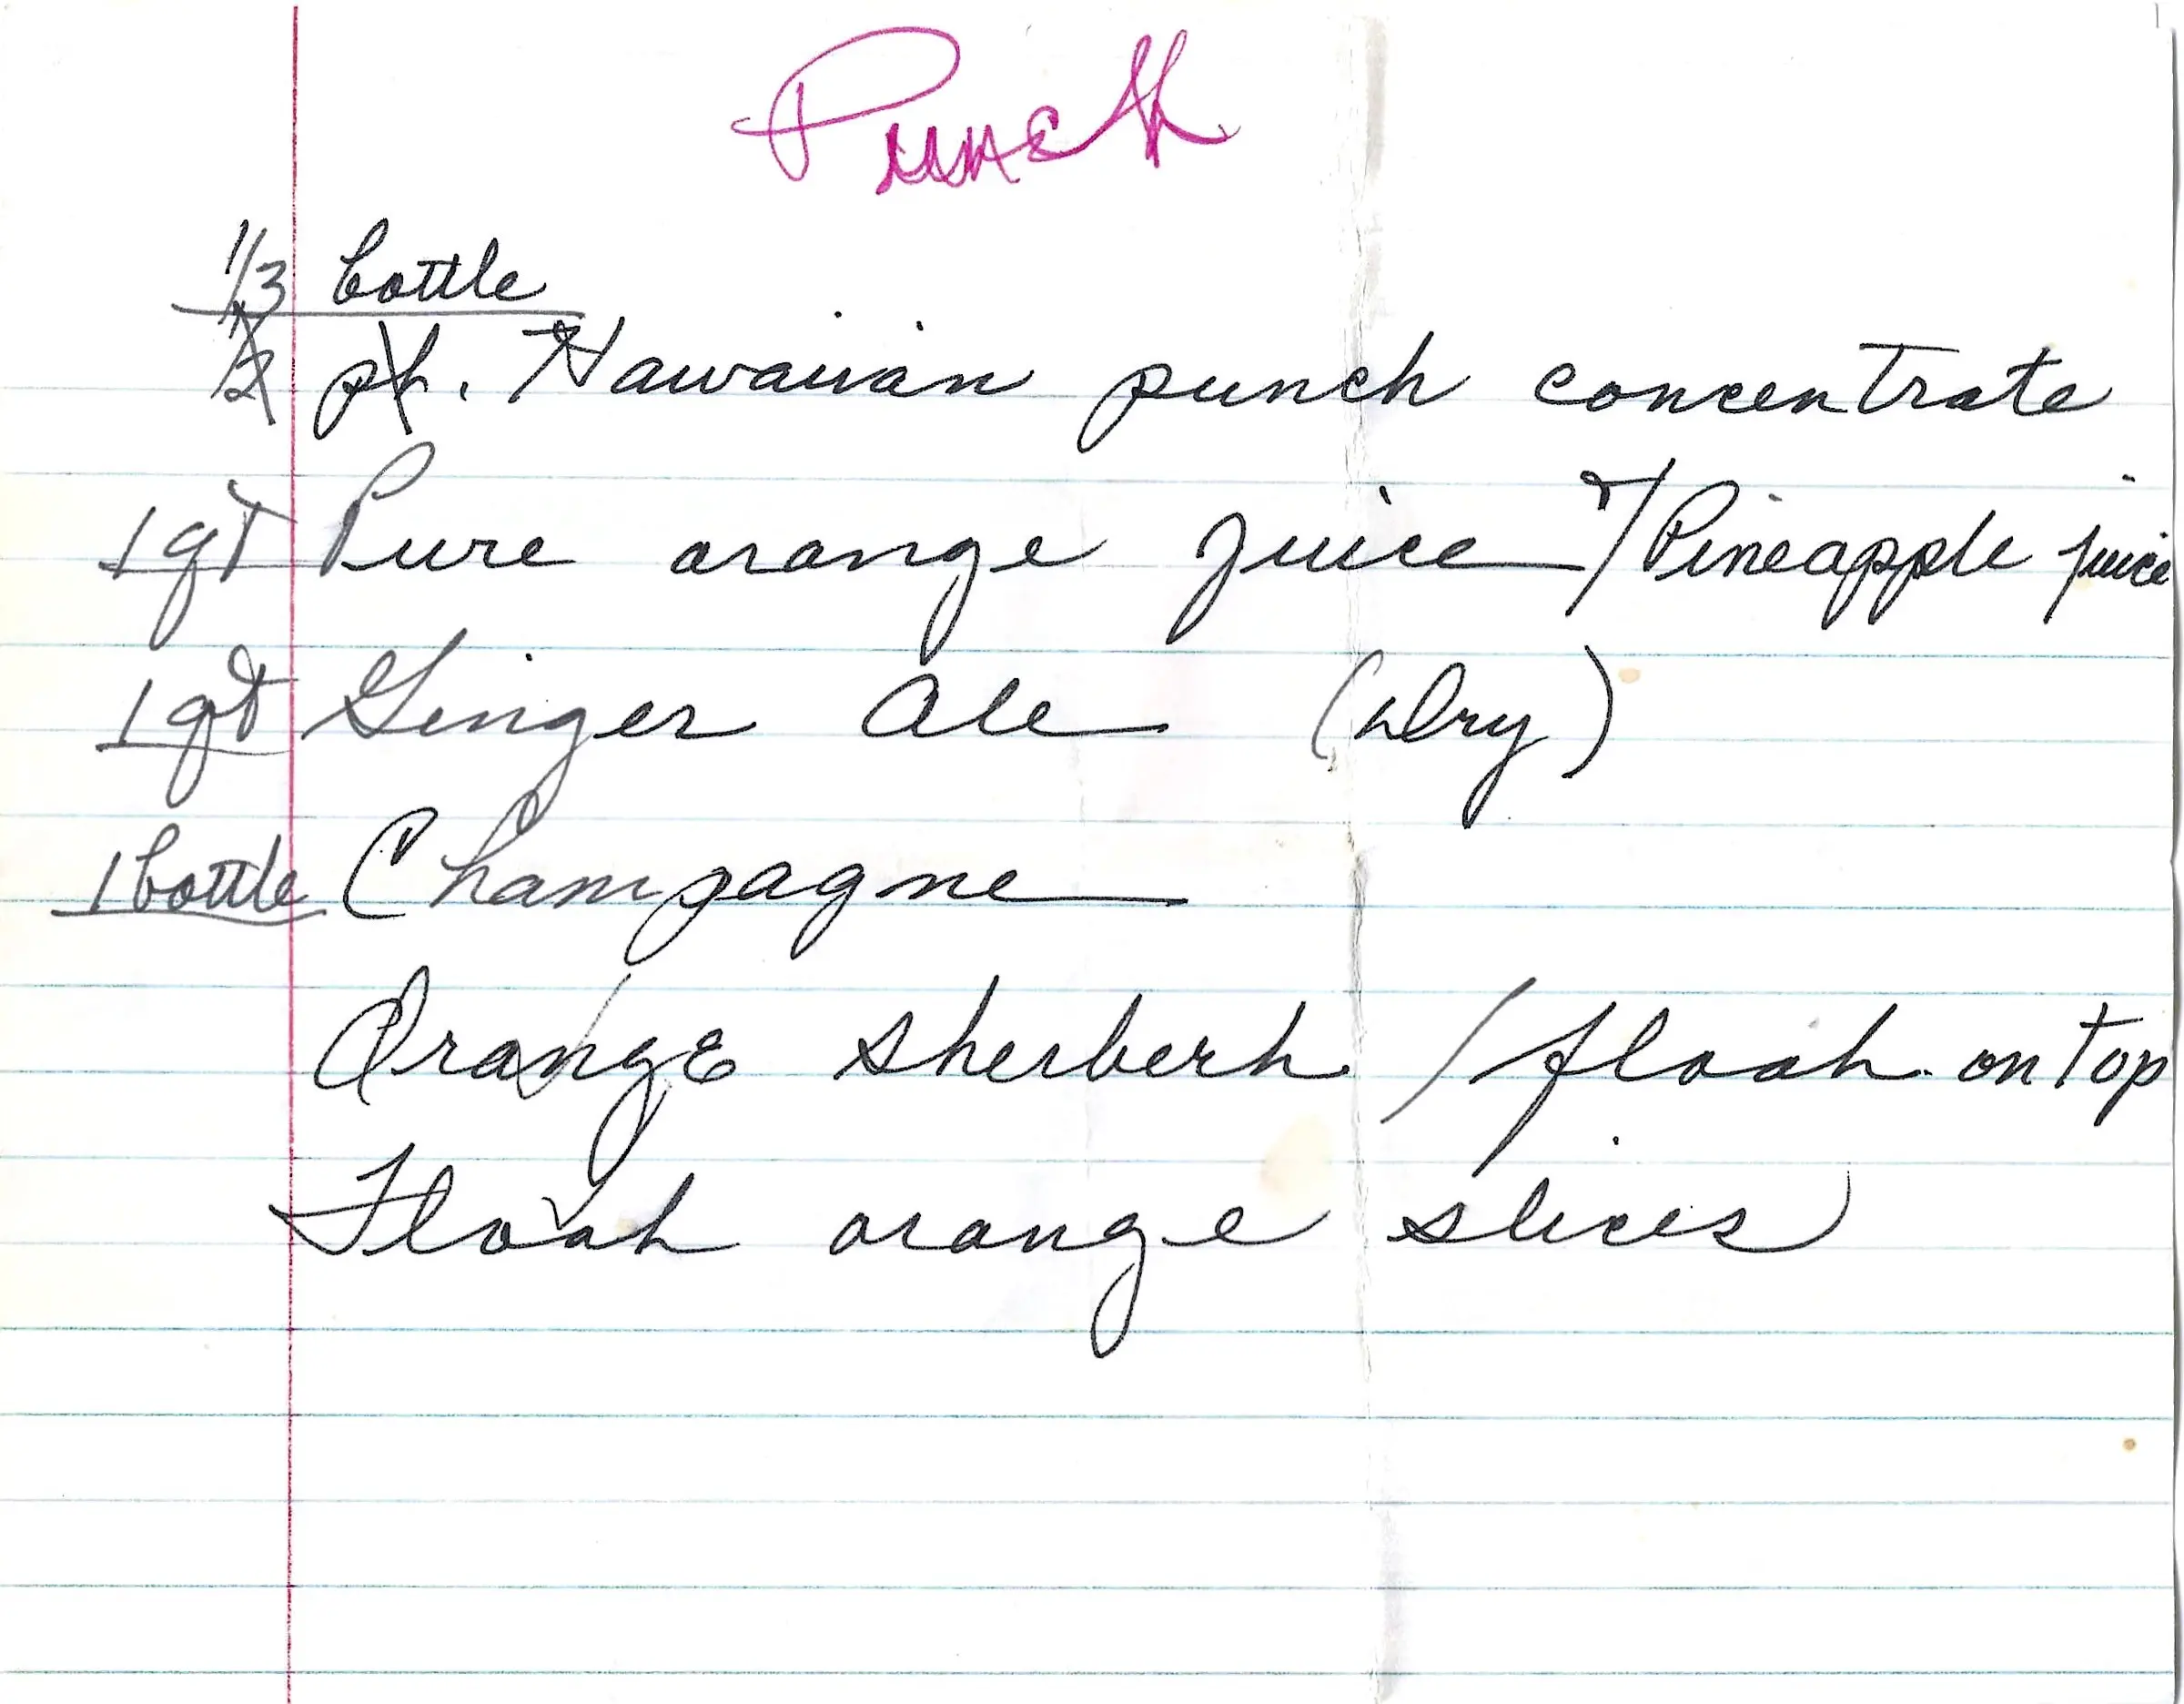 Punch
1/3 bottle
1/2 pt. Hawaiian punch concentrate
1 qt Pure orange juice or/Pineapple juice
1 qt Ginger Ale (Dry)
1 bottle Champagne
Orange sherbert / float on top
Float orange slices